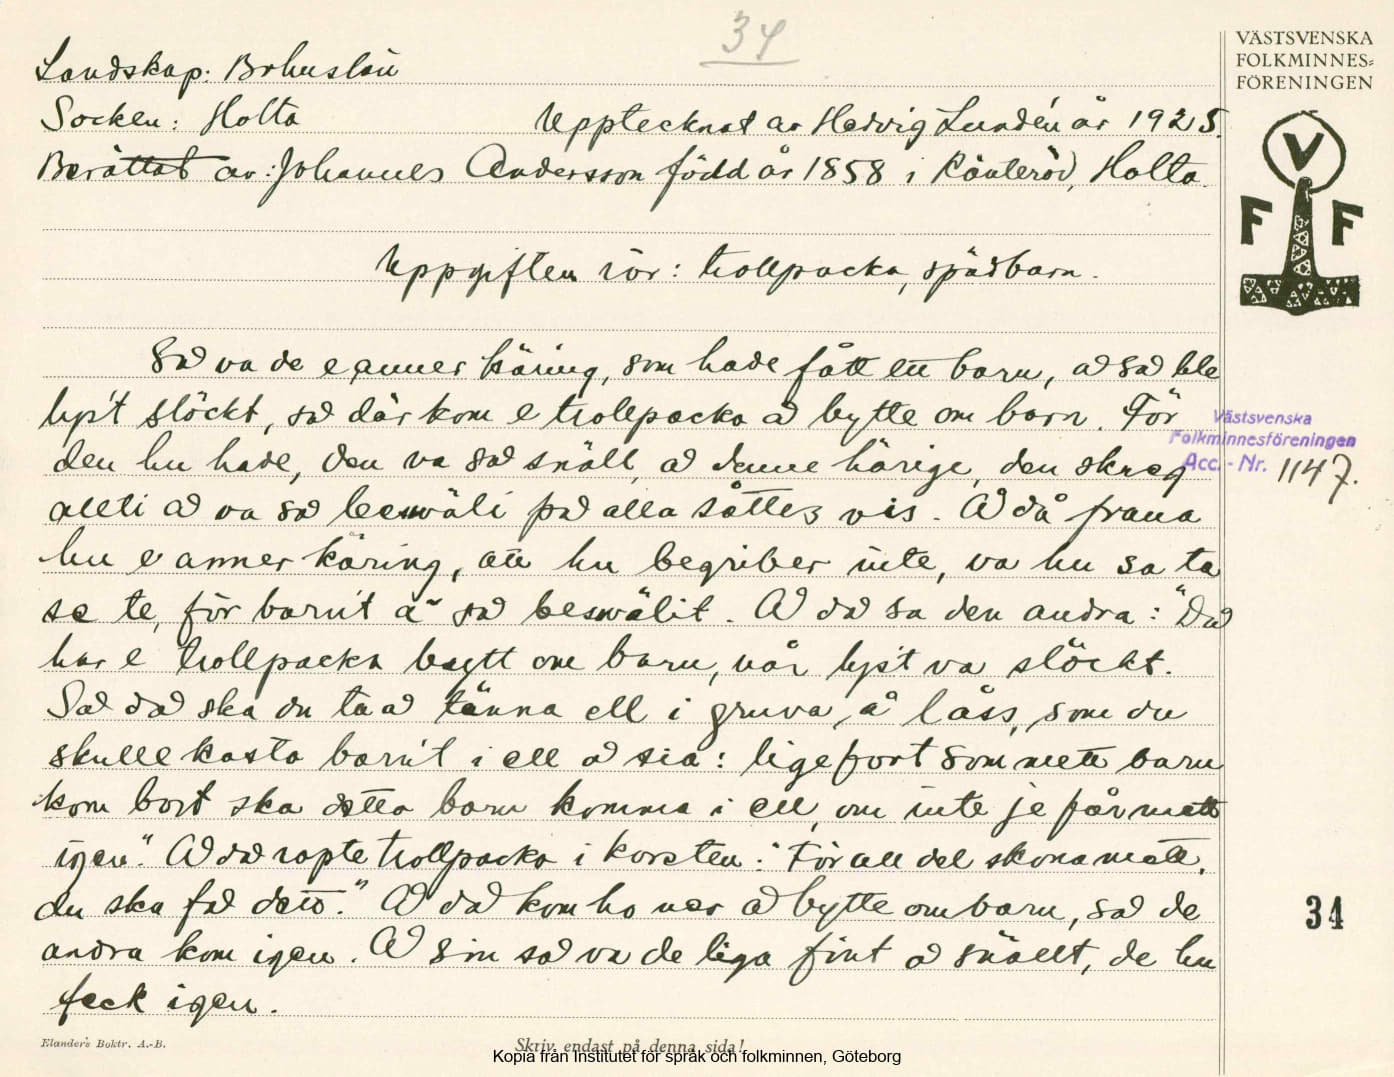 34
Landskap: Bohuslän
Socken: Holta
Upptecknat av Hedvig Lundén år 1925.
Berättat av: Johannes Andersson född år 1858 i Ränteröd, Holta.
Uppgiften rör: trollpacka, spädbarn.
Så va de e anner käring, som hade fått ett barn, å så ble
lys't slöckt, så där kom e trollpacka å bytte om barn. För
den hu hade, den va så snäll, å denne härige, den skreg
allti å va så beswäli på alla sätters vis. Å då fraua
hu e anner käring, att hu begriber inte, va hu sa ta
se te, för barn't ä så beswälit. Å då sa den andra: "Då
har e trollpacka baytt om barn, når lys't va slöckt.
Så då ska du ta å tänna ell i gruva, å låss, som du
skulle kasta barn't i ell å sia: lige fort som mett barn
kom bort ska detta barn komma i ell, om inte je får mett
igen". Å då ropte trollpacka i korsten: "För all del skona mett,
du ska få dett." Å då kom ho ner å bytte om barn, så de
andra kom igen. Å sin så va de liga fint å snällt, de hu
feck igen.
Elander's Boktr. A.-B.
Skriv endast på denna sida!
Kopia från Institutet för språk och folkminnen, Göteborg
VÄSTSVENSKA
FOLKMINNES-
FÖRENINGEN
V
F F
Västsvenska
Folkminnesföreningen
Acc. - Nr. 1147.
34